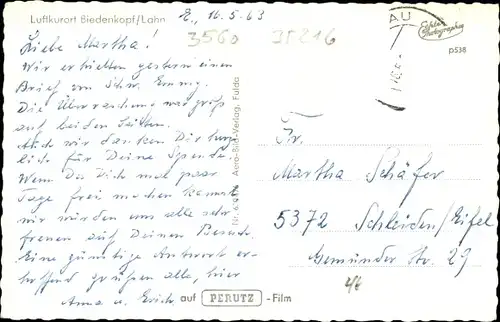 Luftkurort Biedenkopf/Lahn
E., 16.5.63
3560 35216
AU
Echte Photographie
p538
Liebe Martha!
Wir erhielten gestern einen
Brief von Schw. Emmy.
Die Überraschung war groß
auf beiden Seiten.
Auch wir danken Dir herz-
lich für Deine Spende.
Wenn Du Dich mal paar
Tage frei machen kannst
wir würden uns alle sehr
freuen auf Deinen Besuch.
Eine günstige Antwort er-
hoffend grüßen alle, hier
Anna u. Erich
Aero-Bild-Verlag, Fulda
Fr.
Martha Schäfer
5372 Schleiden/Eifel
Gemünder Str. 29
auf PERUTZ -Film